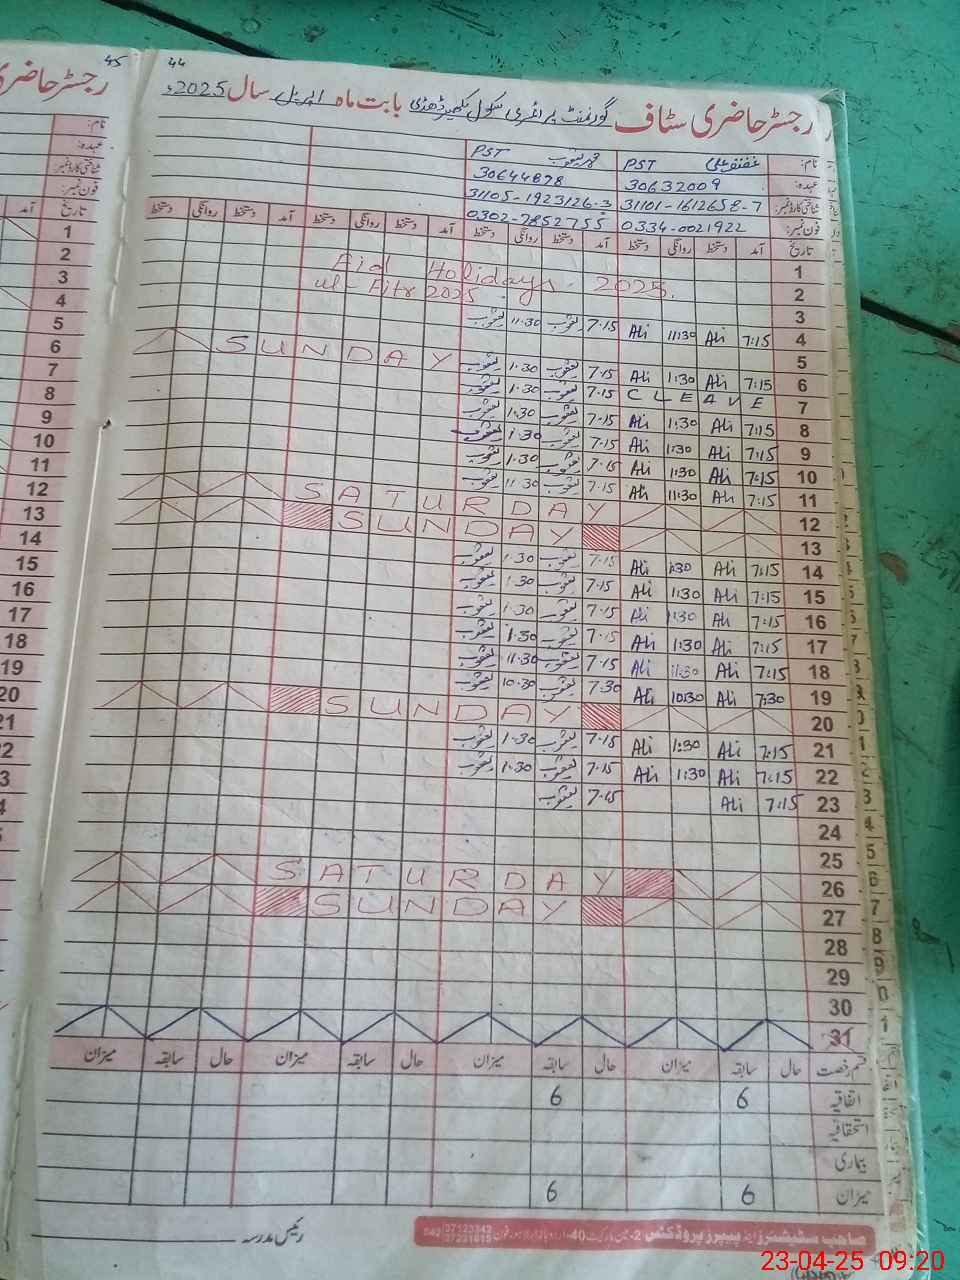 45
44
رجسٹر حاضری سٹاف گورنمنٹ پرائمری سکول بابت ماہ اپریل سال 2025ء
رجسٹر حاضری
نام: PST محمد یعقوب PST
عہدہ: 30632009 30644878
شناختی کارڈ نمبر: 31101-1612658-7 31105-1923126-3
فون نمبر: 0334-0021922 0302-7852755
تاریخ آمد دستخط روانگی دستخط آمد دستخط روانگی دستخط آمد دستخط روانگی دستخط آمد دستخط روانگی دستخط
1 Eid Holidays 2025.
2 ul-Fitr 2025
3
4 7:15 Ali 11:30 Ali 7.15 یعقوب 11.30 یعقوب
5
6 7:15 Ali 1:30 Ali SUNDAY 7.15 یعقوب 1.30 یعقوب
7 CLEAVE 7.15 یعقوب 1.30 یعقوب
8 7:15 Ali 1:30 Ali 7.15 یعقوب 1.30 یعقوب
9 7:15 Ali 1:30 Ali 7.15 یعقوب 1.30 یعقوب
10 7:15 Ali 1:30 Ali 7.15 یعقوب 1.30 یعقوب
11 7:15 Ali 11:30 Ali 7.15 یعقوب 11.30 یعقوب
12 SATURDAY
13 SUNDAY
14 7:15 Ali 1:30 Ali 7.15 یعقوب 1.30 یعقوب
15 7:15 Ali 1:30 Ali 7.15 یعقوب 1.30 یعقوب
16 7:15 Ali 1:30 Ali 7.15 یعقوب 1.30 یعقوب
17 7:15 Ali 1:30 Ali 7.15 یعقوب 1.30 یعقوب
18 7:15 Ali 11:30 Ali 7.15 یعقوب 11.30 یعقوب
19 7:30 Ali 10:30 Ali 7.30 یعقوب 10.30 یعقوب
20 SUNDAY
21 7:15 Ali 1:30 Ali 7.15 یعقوب 1.30 یعقوب
22 7:15 Ali 1:30 Ali 7.15 یعقوب 1.30 یعقوب
23 7:15 Ali 7.15 یعقوب
24
25
26 SATURDAY
27 SUNDAY
28
29
30
31
قسم رخصت حال سابقہ میزان حال سابقہ میزان حال سابقہ میزان حال سابقہ میزان
اتفاقیہ 6 6
استحقاقیہ
بیماری
میزان 6 6
رئیس مدرسہ
صاحب سٹیشنرز اینڈ پیپرز پروڈکٹس
نام:
عہدہ:
شناختی کارڈ نمبر:
فون نمبر:
تاریخ
1
2
3
4
5
6
7
8
9
10
11
12
13
14
15
16
17
18
19
20
21
23-04-25 09:20